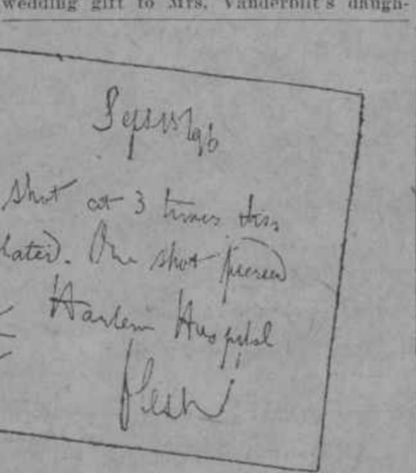 wedding gift to Mrs. Vanderbilt's daugh-
Sept 15/96
shot at 3 times
lated. One shot pierced
Harlem Hospital
flesh